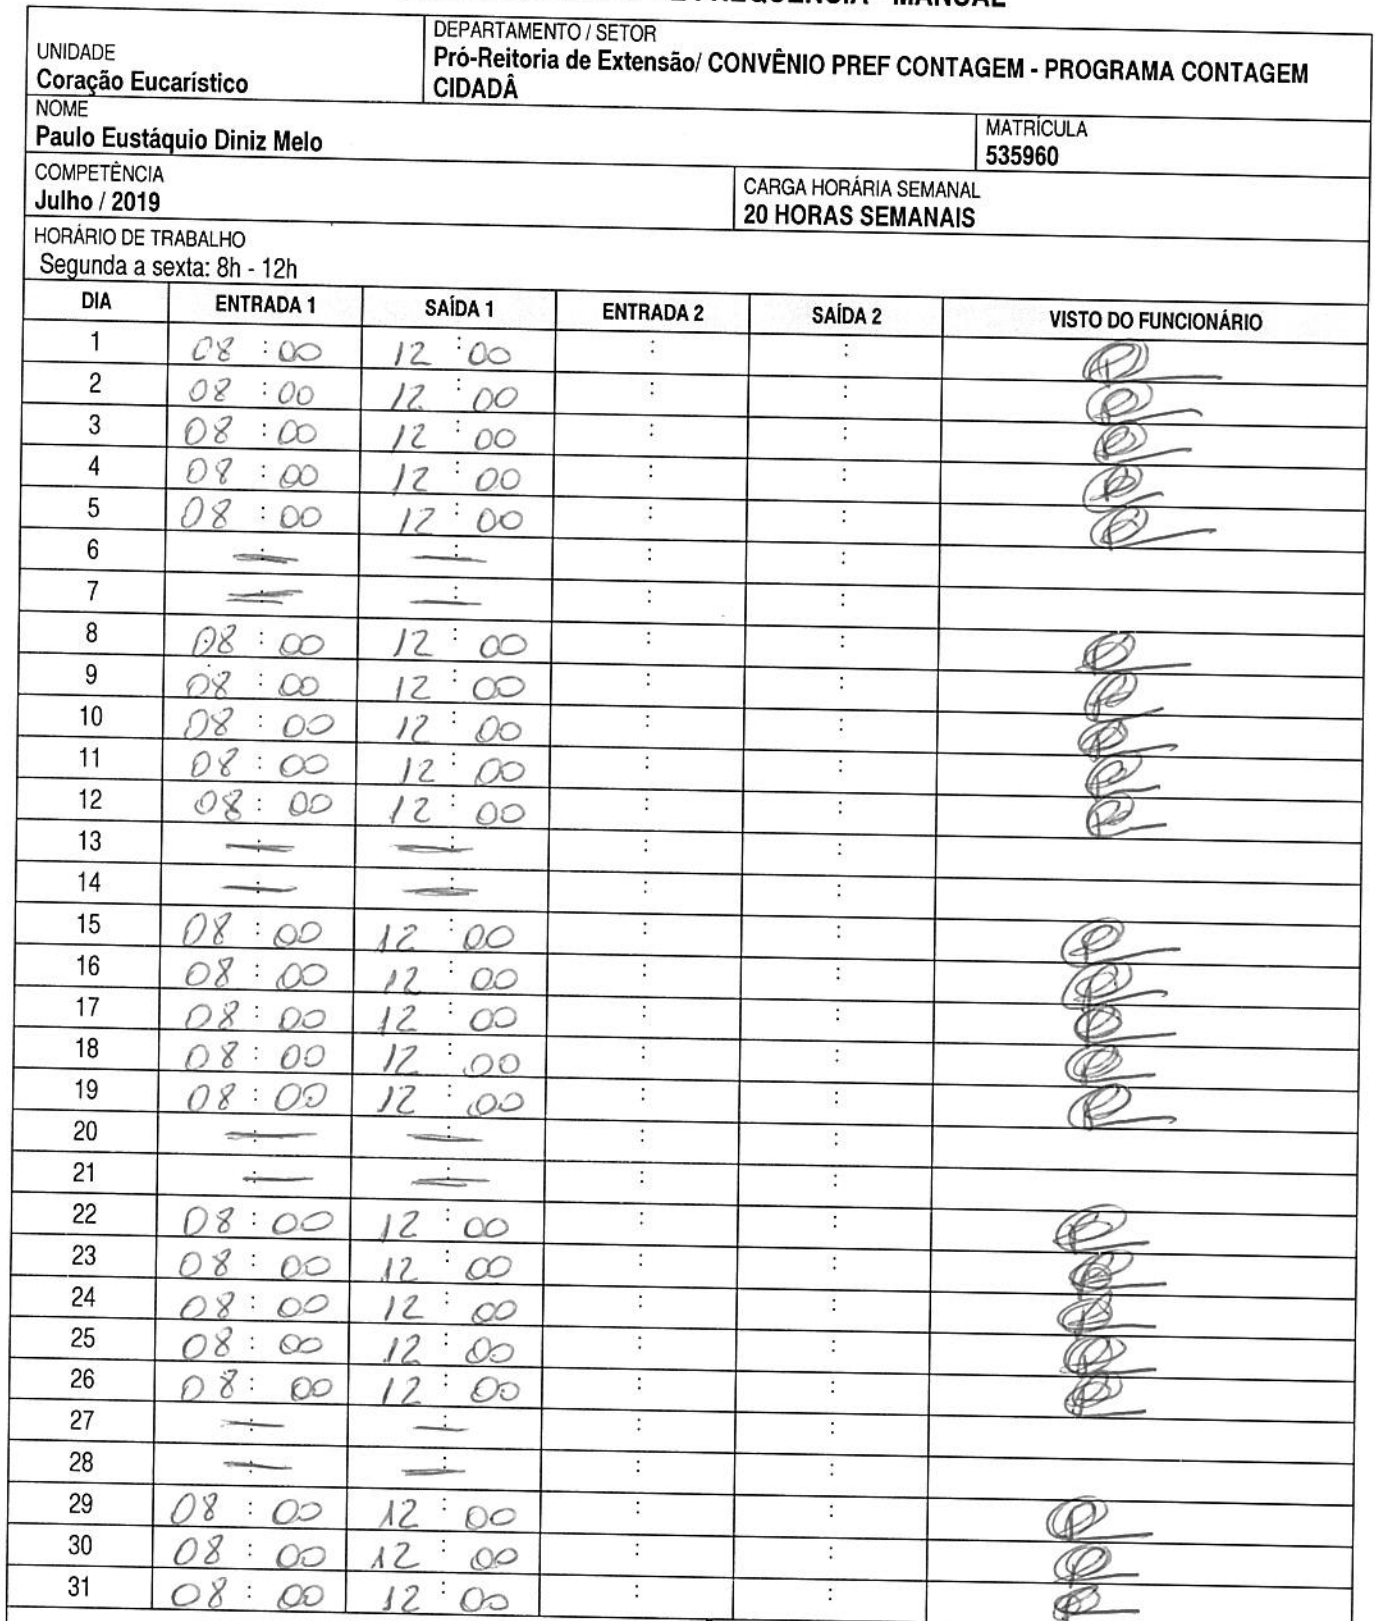 UNIDADE
Coração Eucarístico
DEPARTAMENTO / SETOR
Pró-Reitoria de Extensão/ CONVÊNIO PREF CONTAGEM - PROGRAMA CONTAGEM
CIDADÂ
NOME
Paulo Eustáquio Diniz Melo
MATRÍCULA
535960
COMPETÊNCIA
Julho / 2019
CARGA HORÁRIA SEMANAL
20 HORAS SEMANAIS
HORÁRIO DE TRABALHO
Segunda a sexta: 8h - 12h
DIA ENTRADA 1 SAÍDA 1 ENTRADA 2 SAÍDA 2 VISTO DO FUNCIONÁRIO
1 08 : 00 12 : 00 : :
2 08 : 00 12 : 00 : :
3 08 : 00 12 : 00 : :
4 08 : 00 12 : 00 : :
5 08 : 00 12 : 00 : :
6 : : : :
7 : : : :
8 08 : 00 12 : 00 : :
9 08 : 00 12 : 00 : :
10 08 : 00 12 : 00 : :
11 08 : 00 12 : 00 : :
12 08 : 00 12 : 00 : :
13 : : : :
14 : : : :
15 08 : 00 12 : 00 : :
16 08 : 00 12 : 00 : :
17 08 : 00 12 : 00 : :
18 08 : 00 12 : 00 : :
19 08 : 00 12 : 00 : :
20 : : : :
21 : : : :
22 08 : 00 12 : 00 : :
23 08 : 00 12 : 00 : :
24 08 : 00 12 : 00 : :
25 08 : 00 12 : 00 : :
26 08 : 00 12 : 00 : :
27 : : : :
28 : : : :
29 08 : 00 12 : 00 : :
30 08 : 00 12 : 00 : :
31 08 : 00 12 : 00 : :